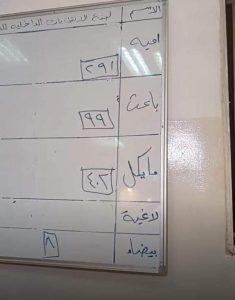 الاسم لجنة الانتخابات الداخلية
امية ٢٩١
باعث ٩٩
مايكل ٤٠٢
لاغية
بيضاء ٨